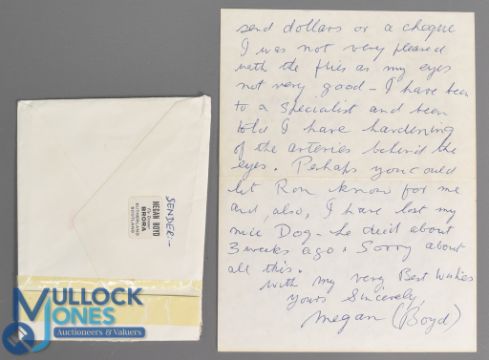 send dollars or a cheque
I was not very pleased
with the flies as my eyes
not very good - I have been
to a specialist and been
told I have hardening
of the arteries behind the
eyes. Perhaps you could
let Ron know for me
and, also, I have lost my
nice Dog - he died about
3 weeks ago. Sorry about
all this.
With my very Best Wishes
Yours Sincerely,
Megan (Boyd)
SENDER:-
MEGAN BOYD
BRORA
SUTHERLAND
SCOTLAND
MULLOCK
JONES
Auctioneers & Valuers